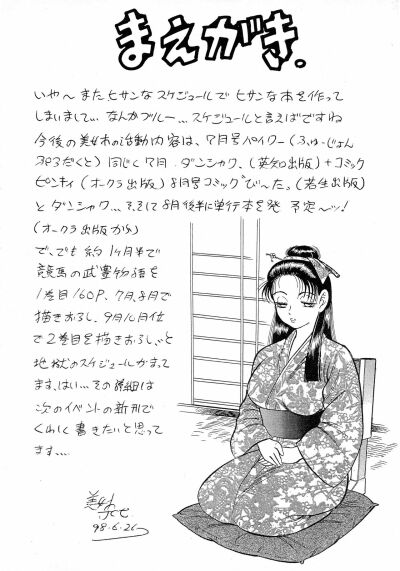 まえがき.
いや〜 またヒサンなスケジュールで ヒサンな本を作って
しまいまして... なんかブルー... スケジュールと言えばですね
今後の美女木の活動内容は、7月号パイワー(ふゅーじょん
ぷろだくと) 同じく7月 ダンシャク、(英知出版)+コミック
ピンキィ(オークラ出版) 8月号コミックびーた。(若生出版)
と ダンシャク... そして8月後半に単行本を発 予定〜ッ!
(オークラ出版から)
で、でも 約1ヶ月半で
競馬の武豊物語を
1巻目160P、7月、8月で
描きおろし、9月10月位
で2巻目を描きおろし、と
地獄のスケジュールかまって
ます、はい... その詳細は
次のイベントの新刊で
くわしく書きたいと思って
ます...
98.6.26